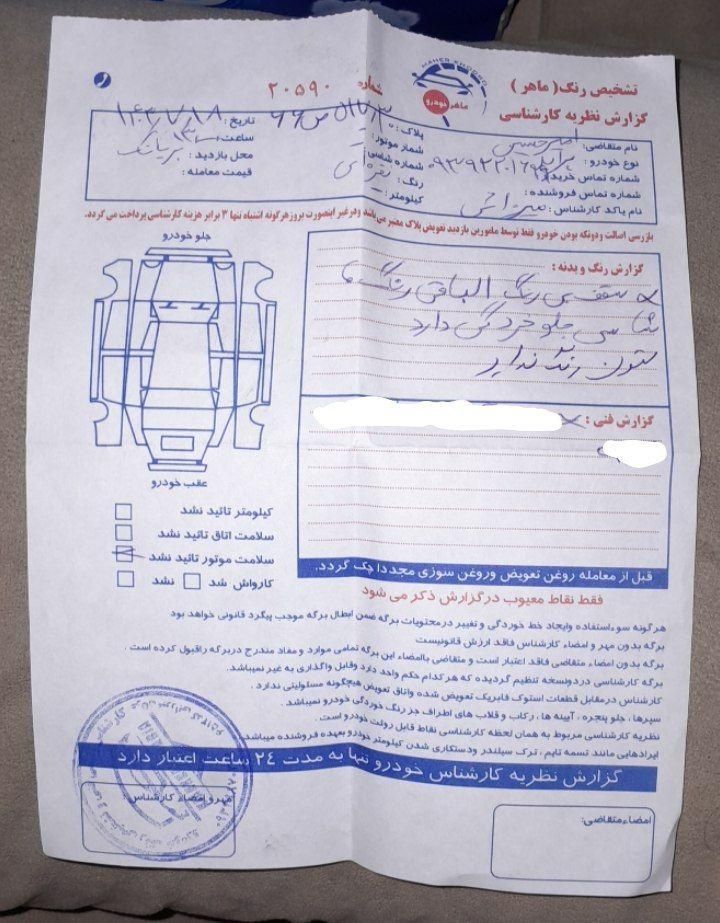 تشخیص رنگ ( ماهر )
گزارش نظریه کارشناسی
MAHER KHODRO
ماهر خودرو
شماره ۲۰۵۹۰
نام متقاضی: امیر حسینی
نوع خودرو: پراید
شماره تماس خریدار:
شماره تماس فروشنده:
نام یاکد کارشناس:
پلاک:
شماره موتور:
شماره شاسی:
رنگ: نقره ای
کیلومتر:
تاریخ: ۱۴۰۳/۷/۱۸
ساعت:
محل بازدید:
قیمت معامله:
بازرسی اصالت ودوتکه بودن خودرو فقط توسط مامورین بازدید تعویض پلاک معتبر می باشد ودرغیر اینصورت بروز هرگونه اشتباه تنها ۳ برابر هزینه کارشناسی پرداخت می گردد.
گزارش رنگ و بدنه :
سقف بی رنگ الباقی رنگ
شاسی جلو خوردگی دارد
ستون رنگ ندارد
جلو خودرو
عقب خودرو
گزارش فنی :
کیلومتر تائید نشد
سلامت اتاق تائید نشد
سلامت موتور تائید نشد
کارواش شد نشد
قبل از معامله روغن تعویض وروغن سوزی مجددا چک گردد.
فقط نقاط معیوب در گزارش ذکر می شود
هرگونه سوءاستفاده وایجاد خط خوردگی و تغییر در محتویات برگه ضمن ابطال برگه موجب پیگرد قانونی خواهد بود
برگه بدون مهر و امضاء کارشناس فاقد ارزش قانونیست
برگه بدون امضاء متقاضی فاقد اعتبار است و متقاضی باامضاء این برگه تمامی موارد و مفاد مندرج دربرگه راقبول کرده است .
برگه کارشناسی دردونسخه تنظیم گردیده که هرکدام حکم واحد دارد وقابل واگذاری به غیر نمیباشد.
کارشناس درمقابل قطعات استوک فابریک تعویض شده واتاق تعویض هیچگونه مسئولیتی ندارد .
سپرها ، جلو پنجره ، آیینه ها ، رکاب و قلاب های اطراف جز رنگ خوردگی خودرو نمیباشد.
نظریه کارشناسی مربوط به همان لحظه کارشناسی نقاط قابل رولت خودرو است .
ایرادهایی مانند تسمه تایم ، ترک سیلندر ودستکاری شدن کیلومتر خودرو بعهده فروشنده میباشد.
گزارش نظریه کارشناس خودرو تنها به مدت ۲۴ ساعت اعتبار دارد
مهر و امضاء کارشناس :
امضاء متقاضی: